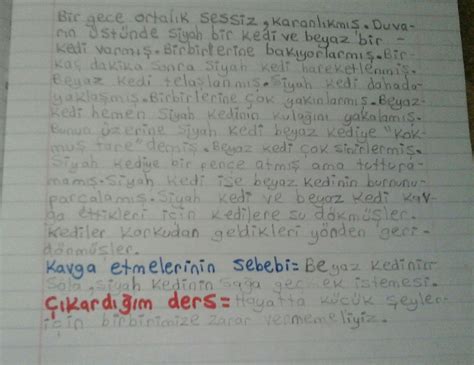 Bir gece ortalık sessiz, karanlıkmış. Duva-
rın üstünde siyah bir kedi ve beyaz bir
kedi varmış. Birbirlerine bakıyorlarmış. Bir-
kaç dakika sonra siyah kedi hareketlenmiş.
Beyaz kedi telaşlanmış. Siyah kedi dahada
yaklaşmış. Birbirlerine çok yakınlarmış. Beyaz
kedi hemen siyah kedinin kulağını yakalamış.
Bunun özerine siyah kedi beyaz kediye "Kok-
muş fare" demiş. Beyaz kedi çok sinirlermiş.
Siyah kediye bir pençe atmış ama tuttura-
mamış. Siyah kedi ise beyaz kedinin burnunu
parçalamış. Siyah kedi ve beyaz kedi kav-
ga ettikleri için kedilere su dökmüşler.
Kediler korkudan geldikleri yönden geri
dönmüşler.
Kavga etmelerinin sebebi= Beyaz kedinin
Sola, siyah kedinin sağa geçmek istemesi.
Çıkardığım ders= Hayatta küçük şeyler
için birbirimize zarar vermemeliyiz.